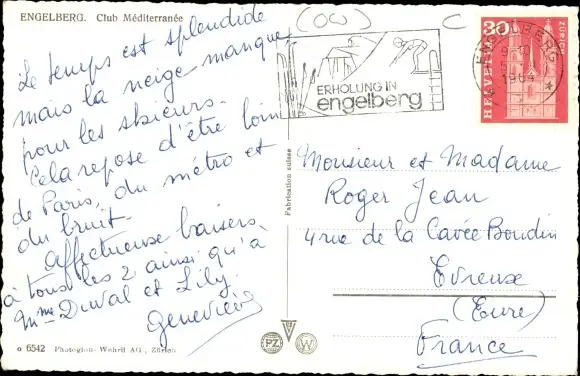 ENGELBERG. Club Méditerranée
Le temps est splendide
mais la neige manque
pour les skieurs.
Cela repose d'être loin
de Paris, du métro et
du bruit.
Affectueux baisers
à tous les 2 ainsi qu'à
Mme Duval et Lily.
Geneviève
6542 Photoglob-Wehrli AG., Zürich
Fabrication suisse
PZ
W
(OW)
C
ERHOLUNG IN
engelberg
ENGELBERG
1964
30
HELVETIA
ZÜRICH
Monsieur et Madame
Roger Jean
4 rue de la Cavée Boudin
Evreux
(Eure)
France